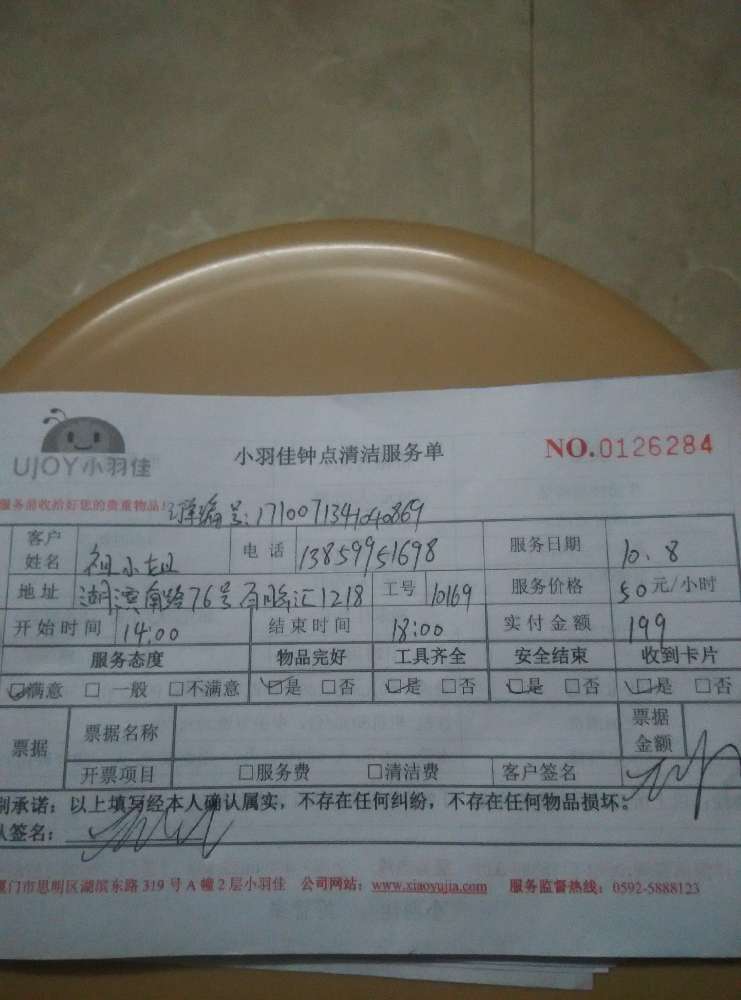 UJOY小羽佳
小羽佳钟点清洁服务单
NO.0126284
服务前收拾好您的贵重物品!
订单编号:1710071341040869
客户姓名 祖小姐 电话 13859951698 服务日期 10.8
地址 湖滨南路76号 汇1218 工号 10169 服务价格 50元/小时
开始时间 14:00 结束时间 18:00 实付金额 199
服务态度 物品完好 工具齐全 安全结束 收到卡片
☑满意 □一般 □不满意 ☑是 □否 ☑是 □否 ☑是 □否 ☑是 □否
票据 票据名称 票据金额
开票项目 □服务费 □清洁费 客户签名
承诺：以上填写经本人确认属实，不存在任何纠纷，不存在任何物品损坏。
签名：
厦门市思明区湖滨东路 319 号 A 幢 2 层小羽佳 公司网站：www.xiaoyujia.com 服务监督热线：0592-5888123